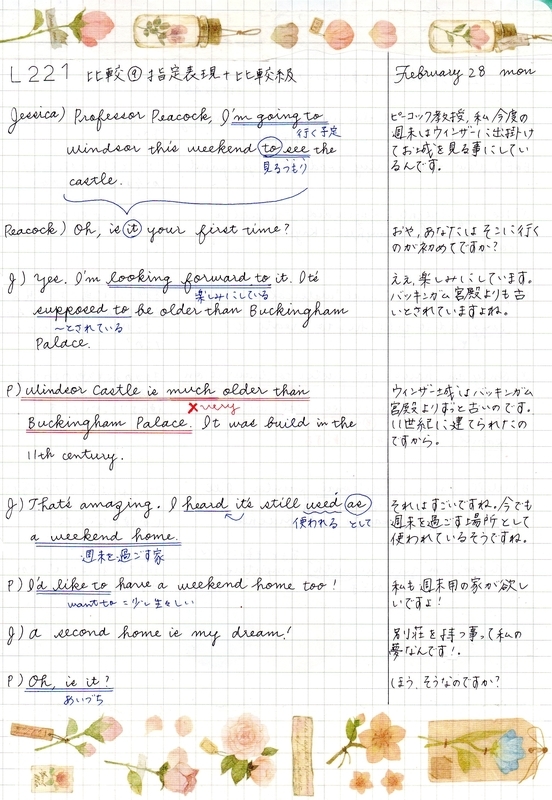 L221 比較⑨ 指定表現+比較級
February 28 mon
Jessica) Professor Peacock, I'm going to
行く予定
windsor this weekend to see the
見るつもり
castle.
ピーコック教授、私今度の
週末はウィンザーに出掛け
てお城を見る事にしてい
るんです。
Peacock) Oh, is it your first time?
おや、あなたはそこに行く
のが初めてですか?
J) Yes. I'm looking forward to it. It's
楽しみにしている
supposed to be older than Buckingham
〜とされている
Palace.
ええ、楽しみにしています。
バッキンガム宮殿よりも古
いとされていますよね。
P) Windsor Castle is much older than
×very
Buckingham Palace. It was build in the
11th century.
ウィンザー城はバッキンガム
宮殿よりずっと古いのです。
11世紀に建てられたの
ですから。
J) That's amazing. I heard it's still used as
使われる として
a weekend home.
週末を過ごす家
それはすごいですね。今でも
週末を過ごす場所として
使われているそうですね。
P) I'd like to have a weekend home too!
want to = 少し生々しい
私も週末用の家が欲し
いですよ!
J) a second home is my dream!
別荘を持つ事って私の
夢なんです!
P) Oh, is it?
あいづち
ほう、そうなのですか?